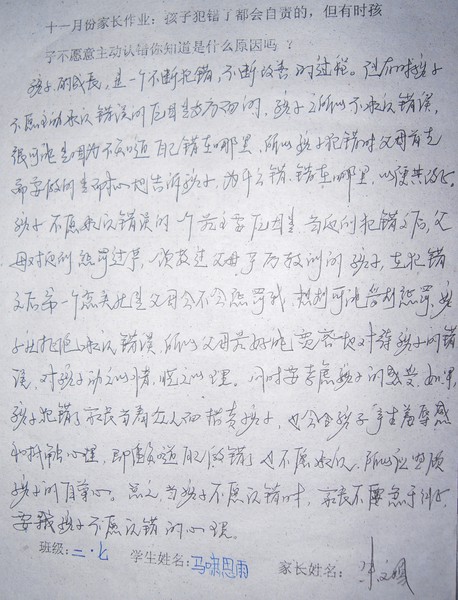 十一月份家长作业：孩子犯错了都会自责的，但有时孩
子不愿意主动认错你知道是什么原因吗？
孩子的成长，是一个不断犯错，不断改善的过程。但有时孩子
不愿主动承认错误的原因是多方面的，孩子之所以不承认错误，
很可能是因为不知道自己错在哪里，所以孩子犯错时父母首先
需要做的是耐心地告诉孩子，为什么错、错在哪里，以便其改正。
孩子不愿承认错误的一个最主要原因是，当他们犯错之后，父
母对他们惩罚过早，
之后第一个念头就是父母会不会惩罚我，
子也拒绝承认错误，所以父母最好能宽容地对待孩子的错
误，对孩子动之以情，晓之以理。同时要考虑孩子的感受，如果
孩子犯错了家长当着众人面指责孩子，也会令孩子产生羞辱感
和抵触心理，即使知道自己做错了也不愿承认，所以应照顾
孩子的自尊心。总之，当孩子不愿认错时，家长不要急于
要找孩子不愿认错的心理。
班级：二·七 学生姓名：马啸思雨 家长姓名：